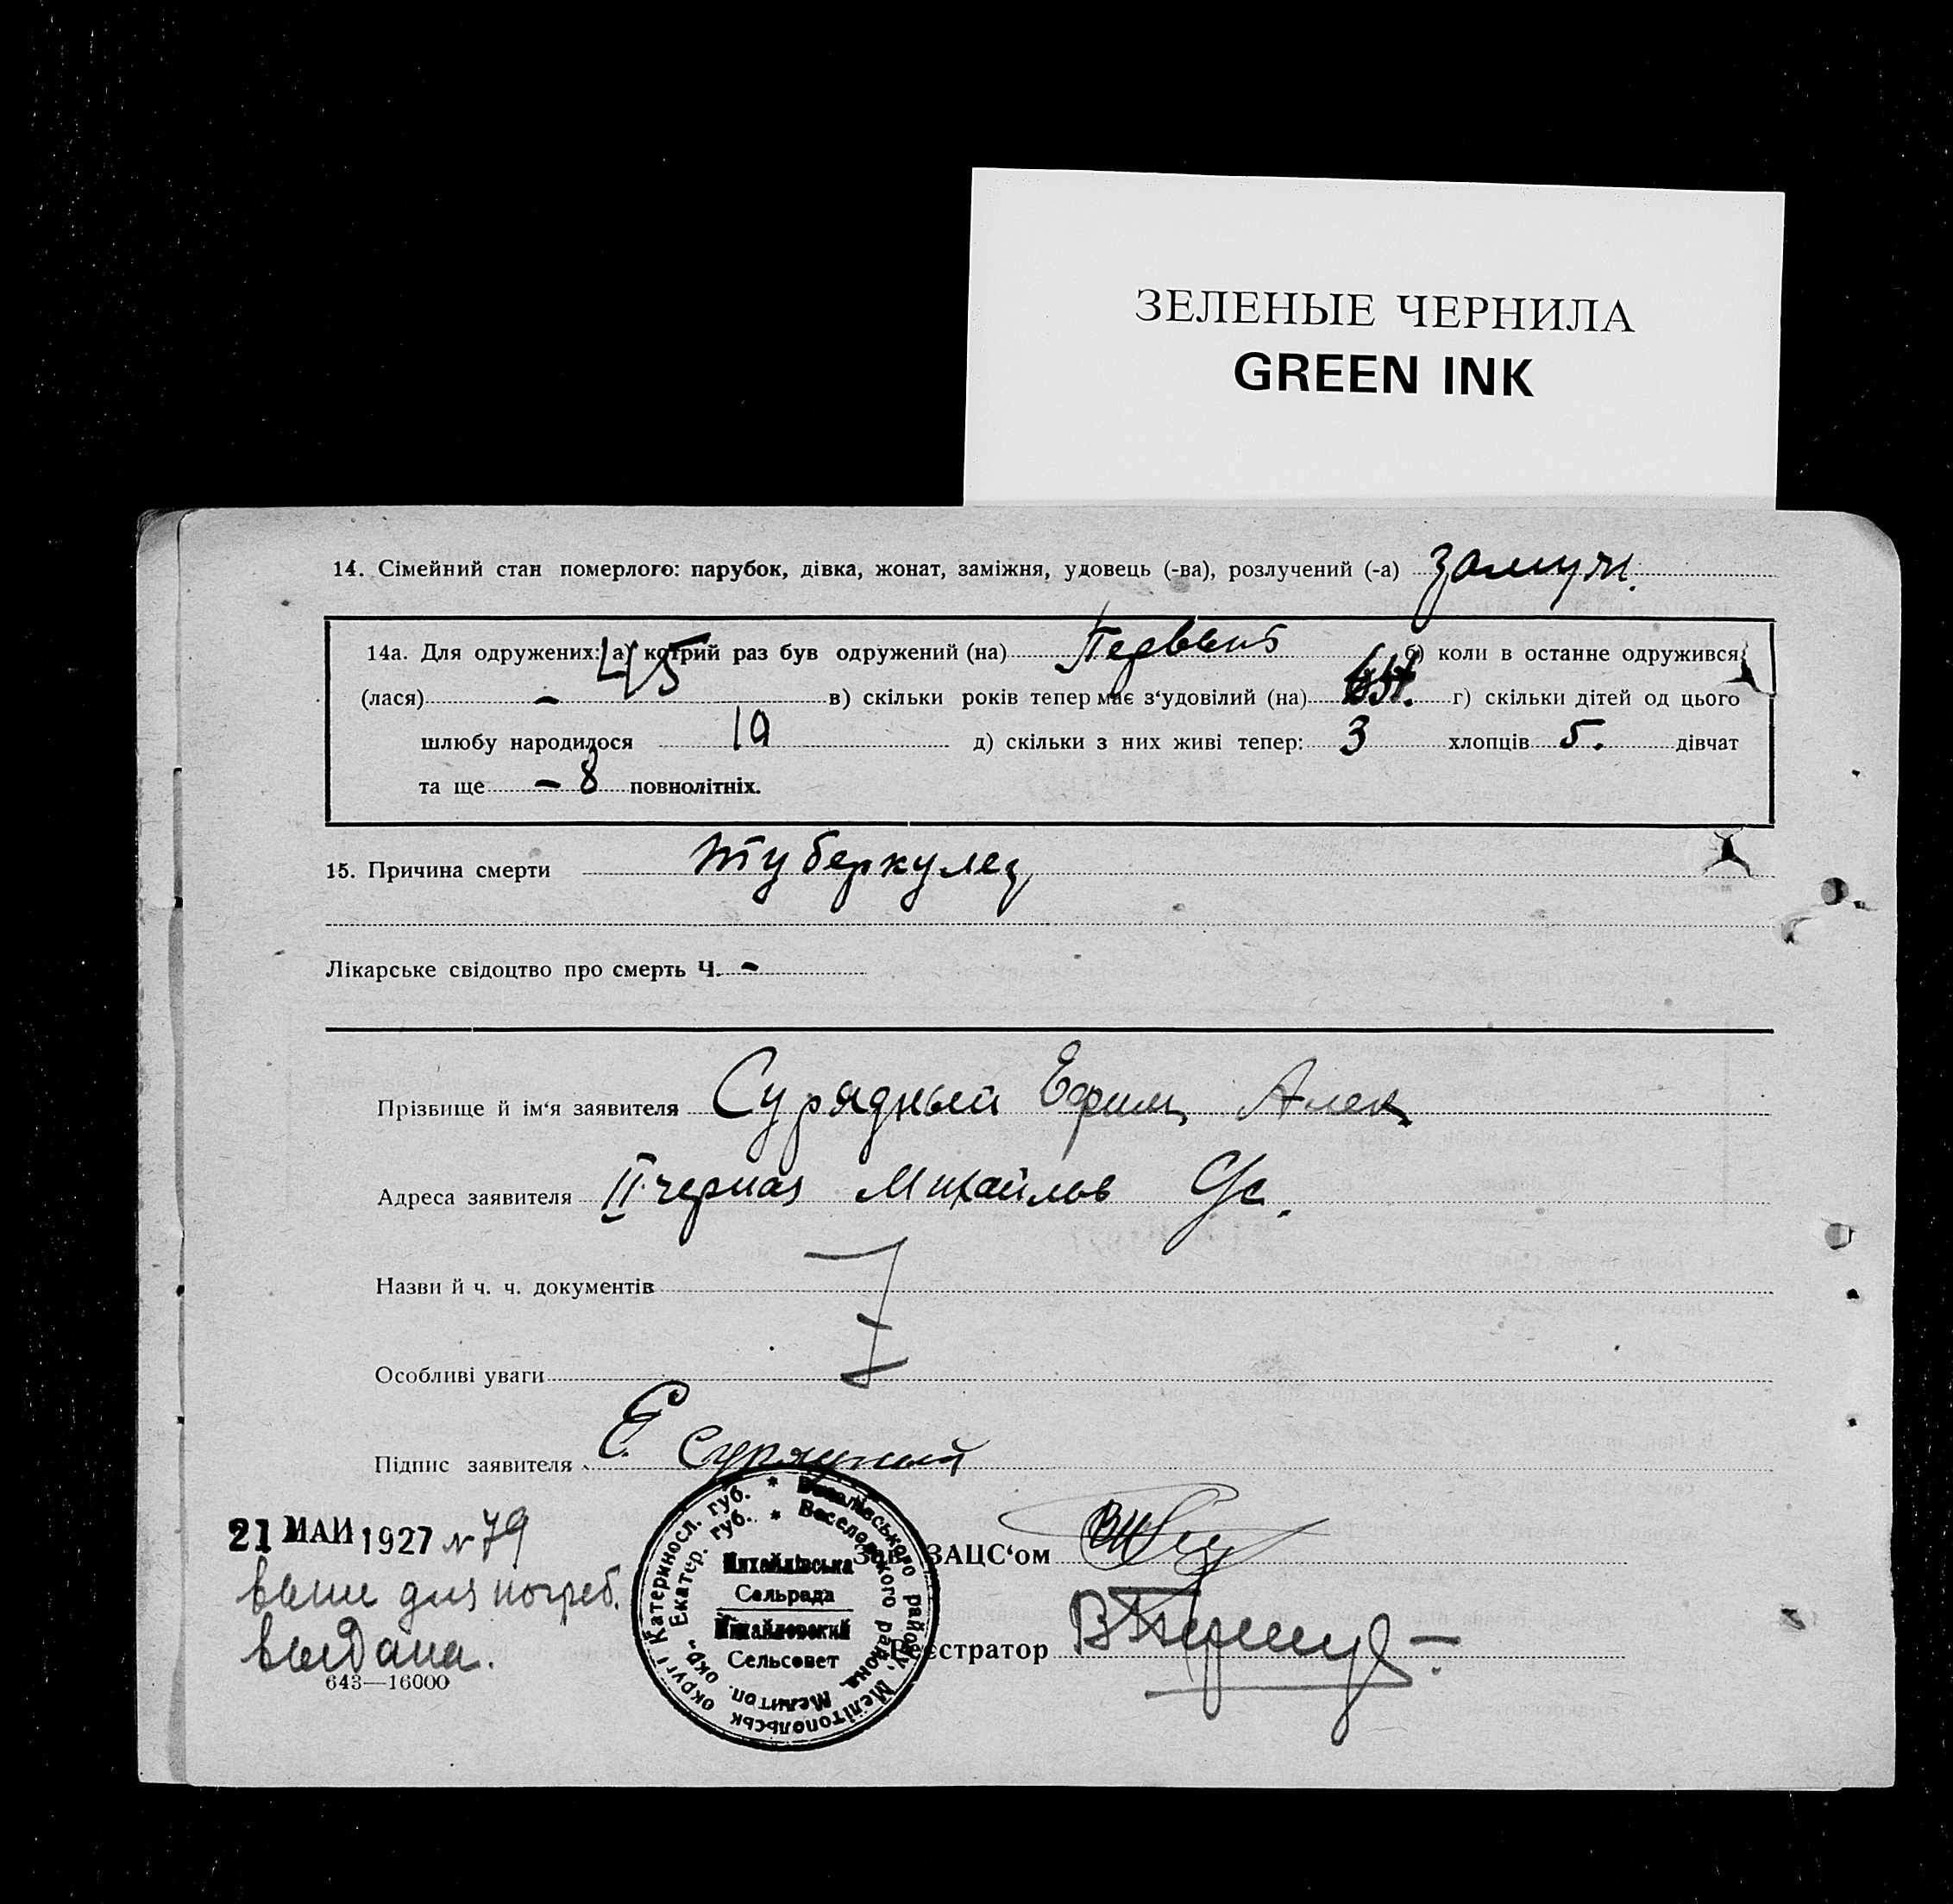 ЗЕЛЕНЫЕ ЧЕРНИЛА
GREEN INK
14. Сімейний стан померлого: парубок, дівка, жонат, заміжня, удовець (-ва), розлучений (-а) замуж.
14а. Для одружених: а) котрий раз був одружений (на) Первый б) коли в останне одружився
(лася) - 45 в) скільки років тепер має з‘удовілий (на) г) скільки дітей од цього
шлюбу народилося 10 д) скільки з них живі тепер: 3 хлопців 5. дівчат
та ще - 8 повнолітніх.
15. Причина смерти туберкулез
Лікарське свідоцтво про смерть Ч. -
Прізвище й ім‘я заявителя Сурядный Ефим Алек
Адреса заявителя II черная Михайлов С/с.
Назви й ч. ч. документів
Особливі уваги
Підпис заявителя Е. Сурядный
21 МАИ 1927 № 79
выпис для погреб.
выдана.
643—16000
Катериносл. губ. * Веселівського району, Мелітопольськ округи
Екатер. губ. * Веселовского района, Мелитоп. окр.
Михайлівська
Сельрада
Михайловский
Сельсовет
Зав. ЗАЦС‘ом
Реєстратор